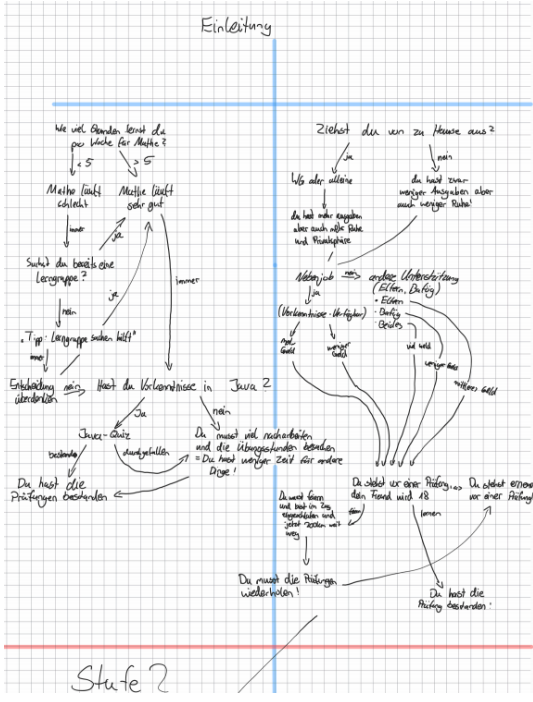 Einleitung
Wie viel Stunden lernst du
pro Woche für Mathe?
< 5
> 5
Mathe läuft
schlecht
Mathe läuft
sehr gut
immer
ja
Suchst du bereits eine
Lerngruppe?
ja
immer
nein
"Tipp: Lerngruppe suchen hilft"
immer
Entscheidung
überdenken
nein
Hast du Vorkenntnisse in Java?
Ja
nein
Java-Quiz
bestanden
durchgefallen
Du musst viel nacharbeiten
und die Übungsstunden besuchen
= Du hast weniger Zeit für andere
Dinge!
Du hast die
Prüfungen bestanden
Ziehst du von zu Hause aus?
ja
nein
WG oder alleine
du hast zwar
weniger Ausgaben aber
auch weniger Ruhe!
du hast mehr ausgaben
aber auch mehr Ruhe
und Privatsphäre
Nebenjob
nein
andere Unterstützung
(Eltern, Bafög)
• Eltern
• Bafög
• Beides
ja
(Vorkenntnisse - Verfügbar)
mehr
Geld
weniger
Geld
viel Geld
weniger Geld
mittleres Geld
Du stehst vor einer Prüfung,
dein Freund wird 18
Du stehst erneut
vor einer Prüfung!
feiern
lernen
Du warst feiern
und bist im Zug
eingeschlafen und
jetzt 200km weit
weg
Du musst die Prüfungen
wiederholen!
Du hast die
Prüfung bestanden!
Stufe 2